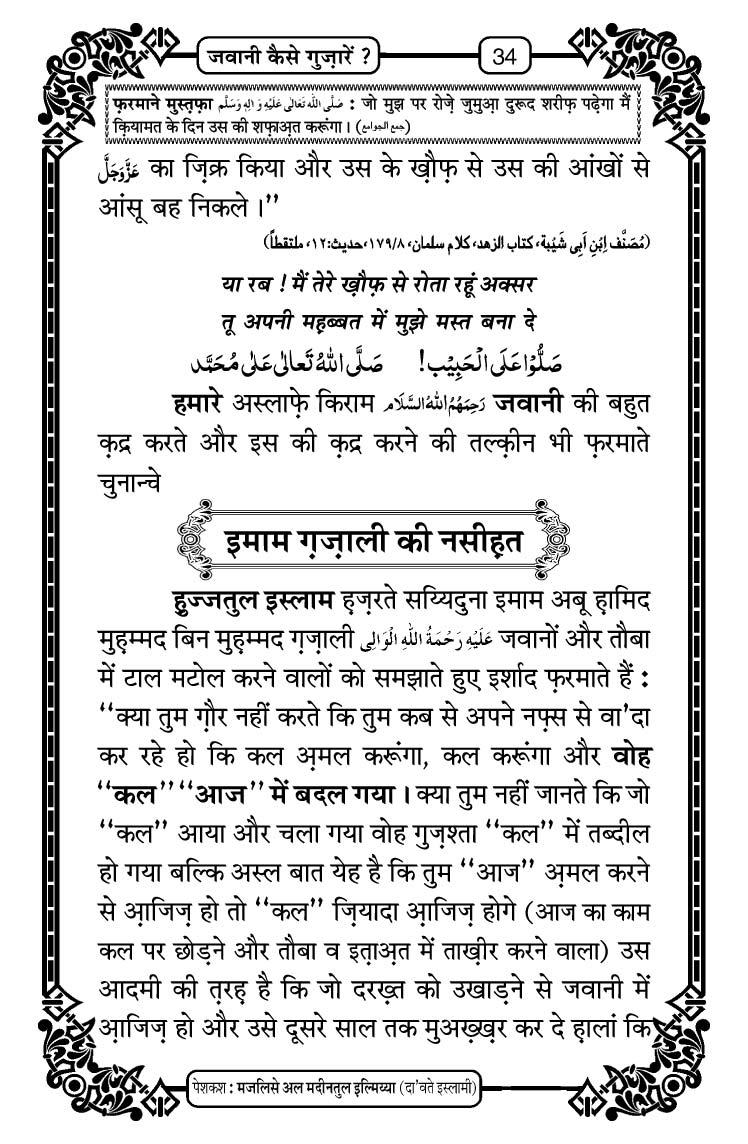 जवानी कैसे गुज़ारें ?
34
फ़रमाने मुस्त़फ़ा صَلَّى اللّٰه تَعَالٰى عَلَيْهِ وَاٰلِهٖ وَسَلَّم : जो मुझ पर रोज़े जुमुआ़ दुरूद शरीफ़ पढ़ेगा मैं
क़ियामत के दिन उस की शफ़ाअ़त करूंगा । (جمع الجوامع)
عَزَّوَجَلَّ का ज़िक्र किया और उस के ख़ौफ़ से उस की आंखों से
आंसू बह निकले ।”
(مُصَنَّف اِبْنِ اَبِى شَيْبَة، كتاب الزهد، كلام سلمان، ٨/١٧٩، حديث:١٢، ملتقطاً)
या रब ! मैं तेरे ख़ौफ़ से रोता रहूं अक्सर
तू अपनी मह़ब्बत में मुझे मस्त बना दे
صَلُّوْا عَلَى الْحَبِيْب! صَلَّى اللّٰهُ تَعَالٰى عَلٰى مُحَمَّد
हमारे अस्लाफ़े किराम رَحِمَهُمُ اللّٰهُ السَّلَام जवानी की बहुत
क़द्र करते और इस की क़द्र करने की तल्क़ीन भी फ़रमाते
चुनान्चे
इमाम ग़ज़ाली की नसीह़त
हुज्जतुल इस्लाम ह़ज़रते सय्यिदुना इमाम अबू ह़ामिद
मुह़म्मद बिन मुह़म्मद ग़ज़ाली عَلَيْهِ رَحْمَةُ اللّٰهِ الْوَالِى जवानों और तौबा
में टाल मटोल करने वालों को समझाते हुए इर्शाद फ़रमाते हैं :
“क्या तुम ग़ौर नहीं करते कि तुम कब से अपने नफ़्स से वा'दा
कर रहे हो कि कल अ़मल करूंगा, कल करूंगा और वोह
“कल” “आज” में बदल गया । क्या तुम नहीं जानते कि जो
“कल” आया और चला गया वोह गुज़श्ता “कल” में तब्दील
हो गया बल्कि अस्ल बात येह है कि तुम “आज” अ़मल करने
से अ़ाजिज़ हो तो “कल” ज़ियादा अ़ाजिज़ होगे (आज का काम
कल पर छोड़ने और तौबा व इत़ाअ़त में ताख़ीर करने वाला) उस
आदमी की त़रह़ है कि जो दरख़्त को उखाड़ने से जवानी में
अ़ाजिज़ हो और उसे दूसरे साल तक मुअख़्ख़र कर दे ह़ालां कि
पेशकश : मजलिसे अल मदीनतुल इल्मिय्या (दा'वते इस्लामी)